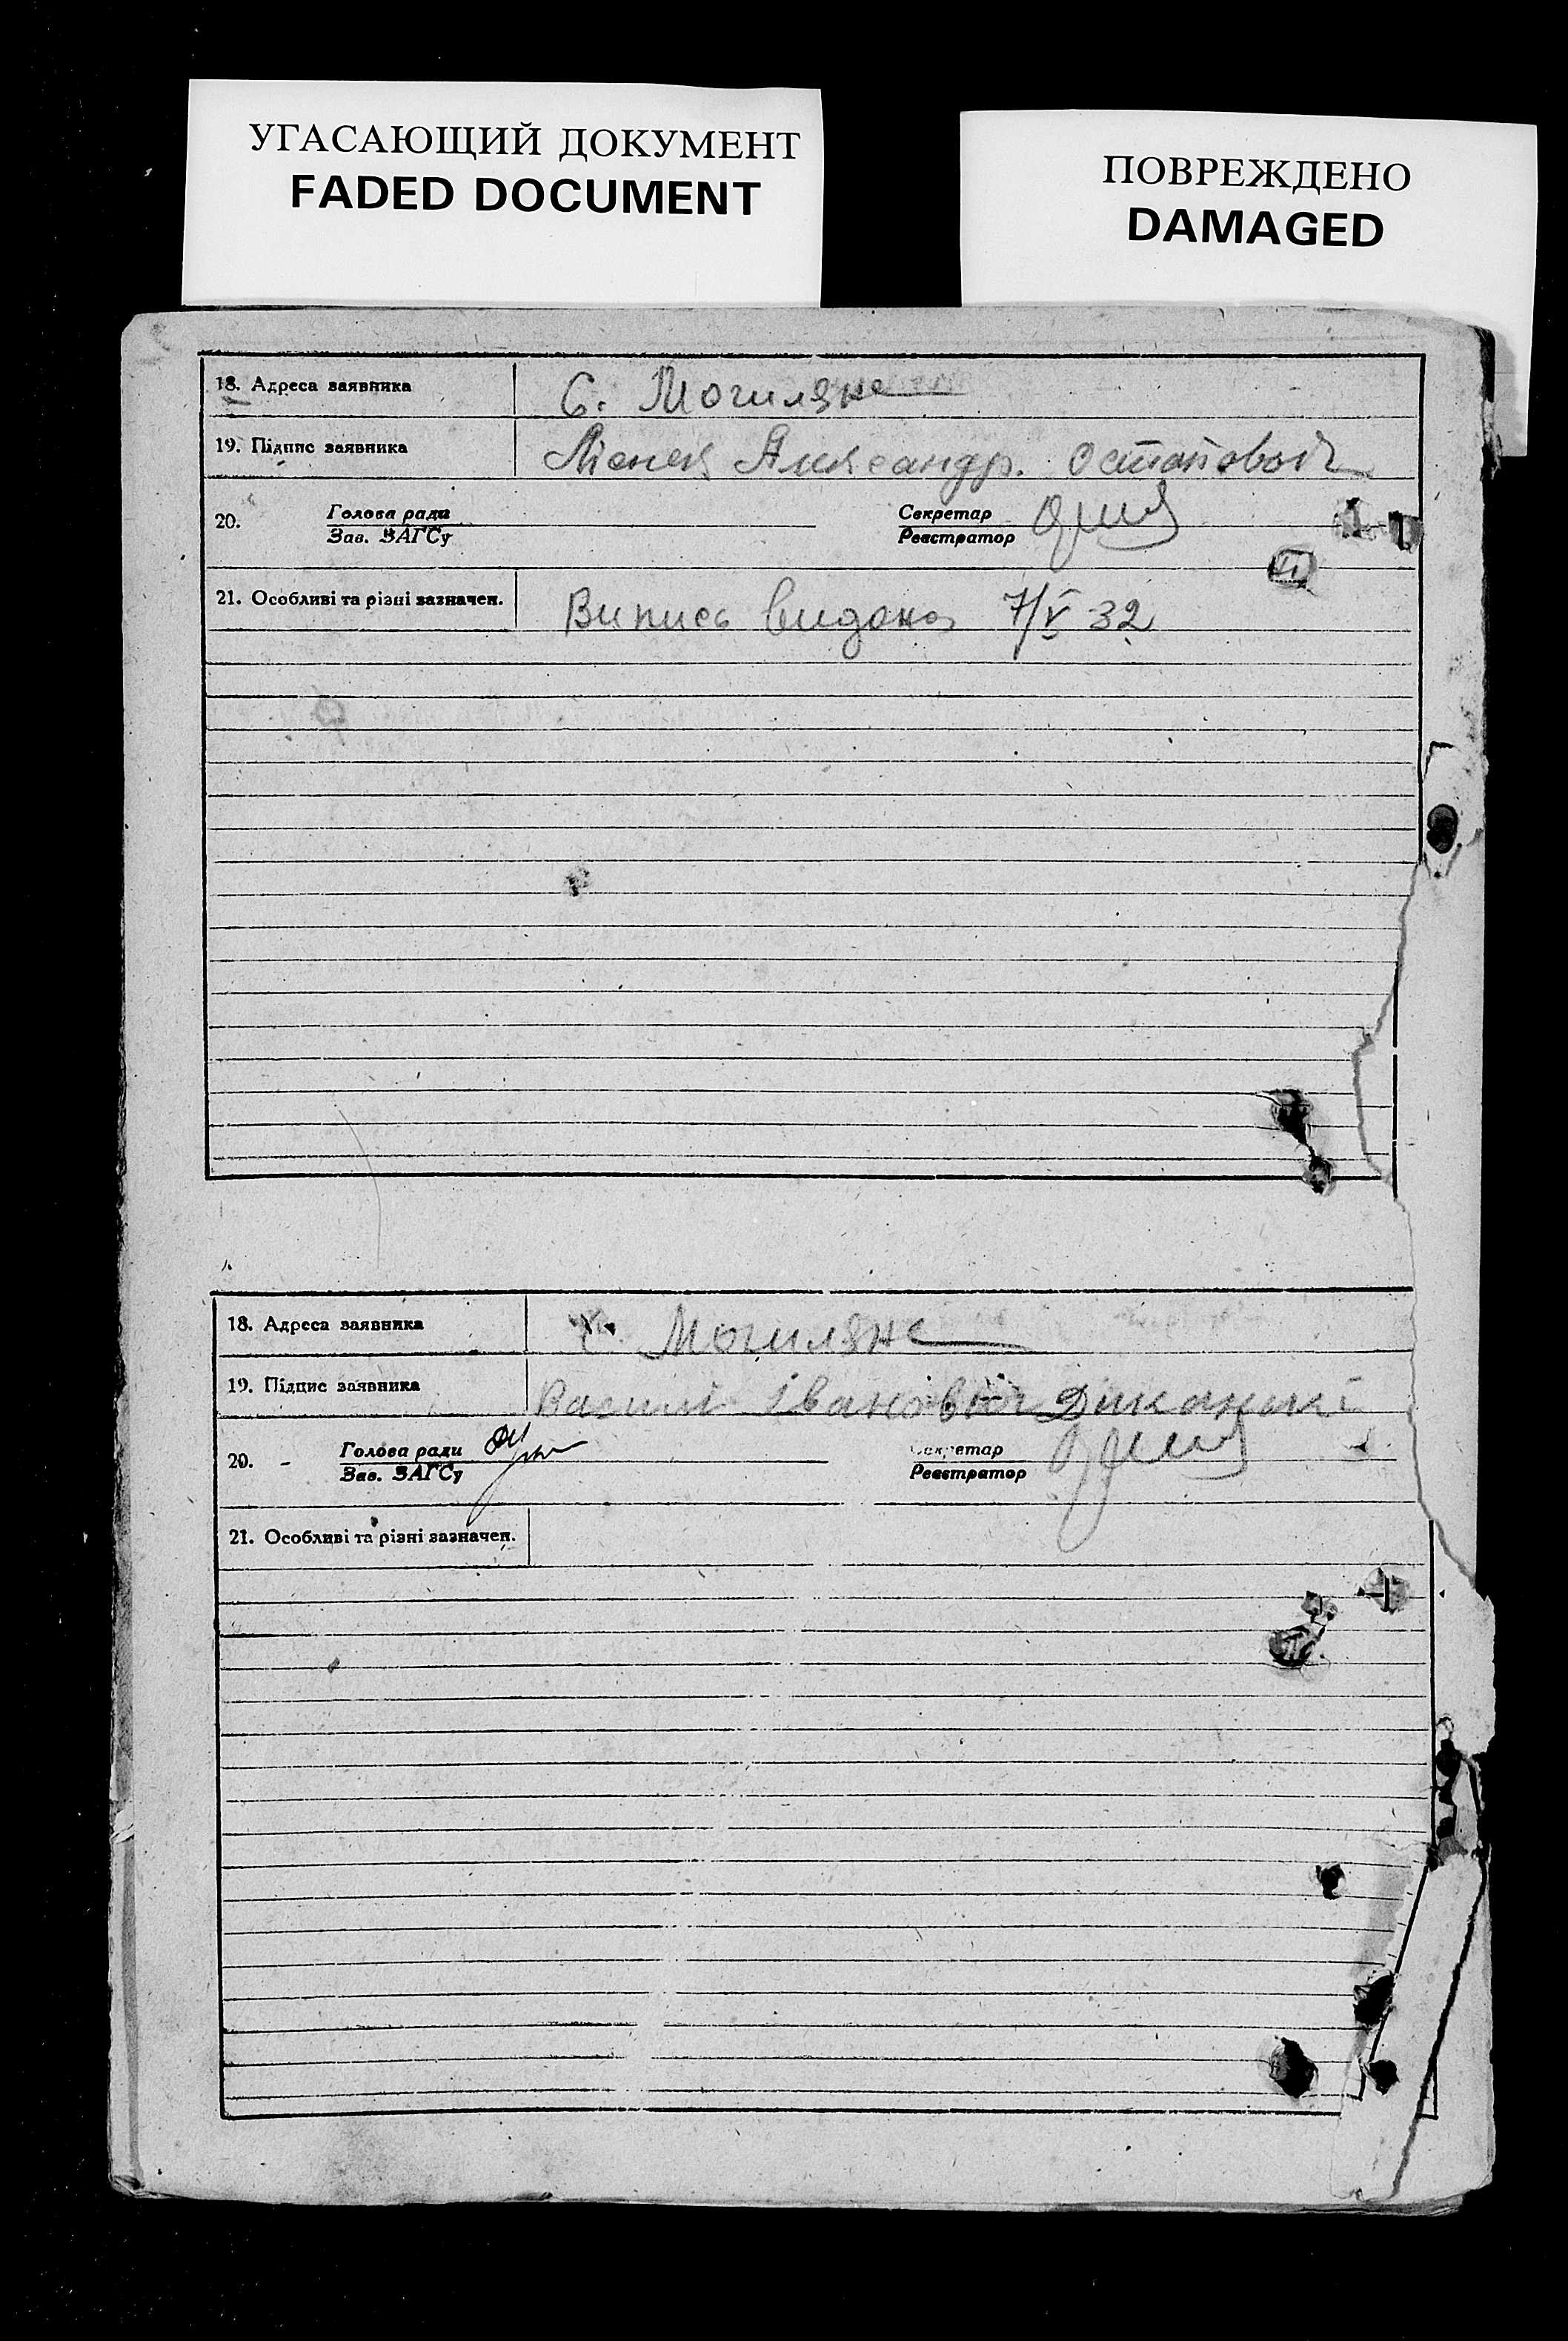 УГАСАЮЩИЙ ДОКУМЕНТ
FADED DOCUMENT
ПОВРЕЖДЕНО
DAMAGED
18. Адреса заявника С. Могиляне
19. Підпис заявника Остапович
20. Голова ради Секретар
Зав. ЗАГСу Реєстратор
21. Особливі та різні зазначен. Випись видана 7/V 32
18. Адреса заявника с. Могиляне
19. Підпис заявника Васил Іванович
20. Голова ради Секретар
Зав. ЗАГСу Реєстратор
21. Особливі та різні зазначен.